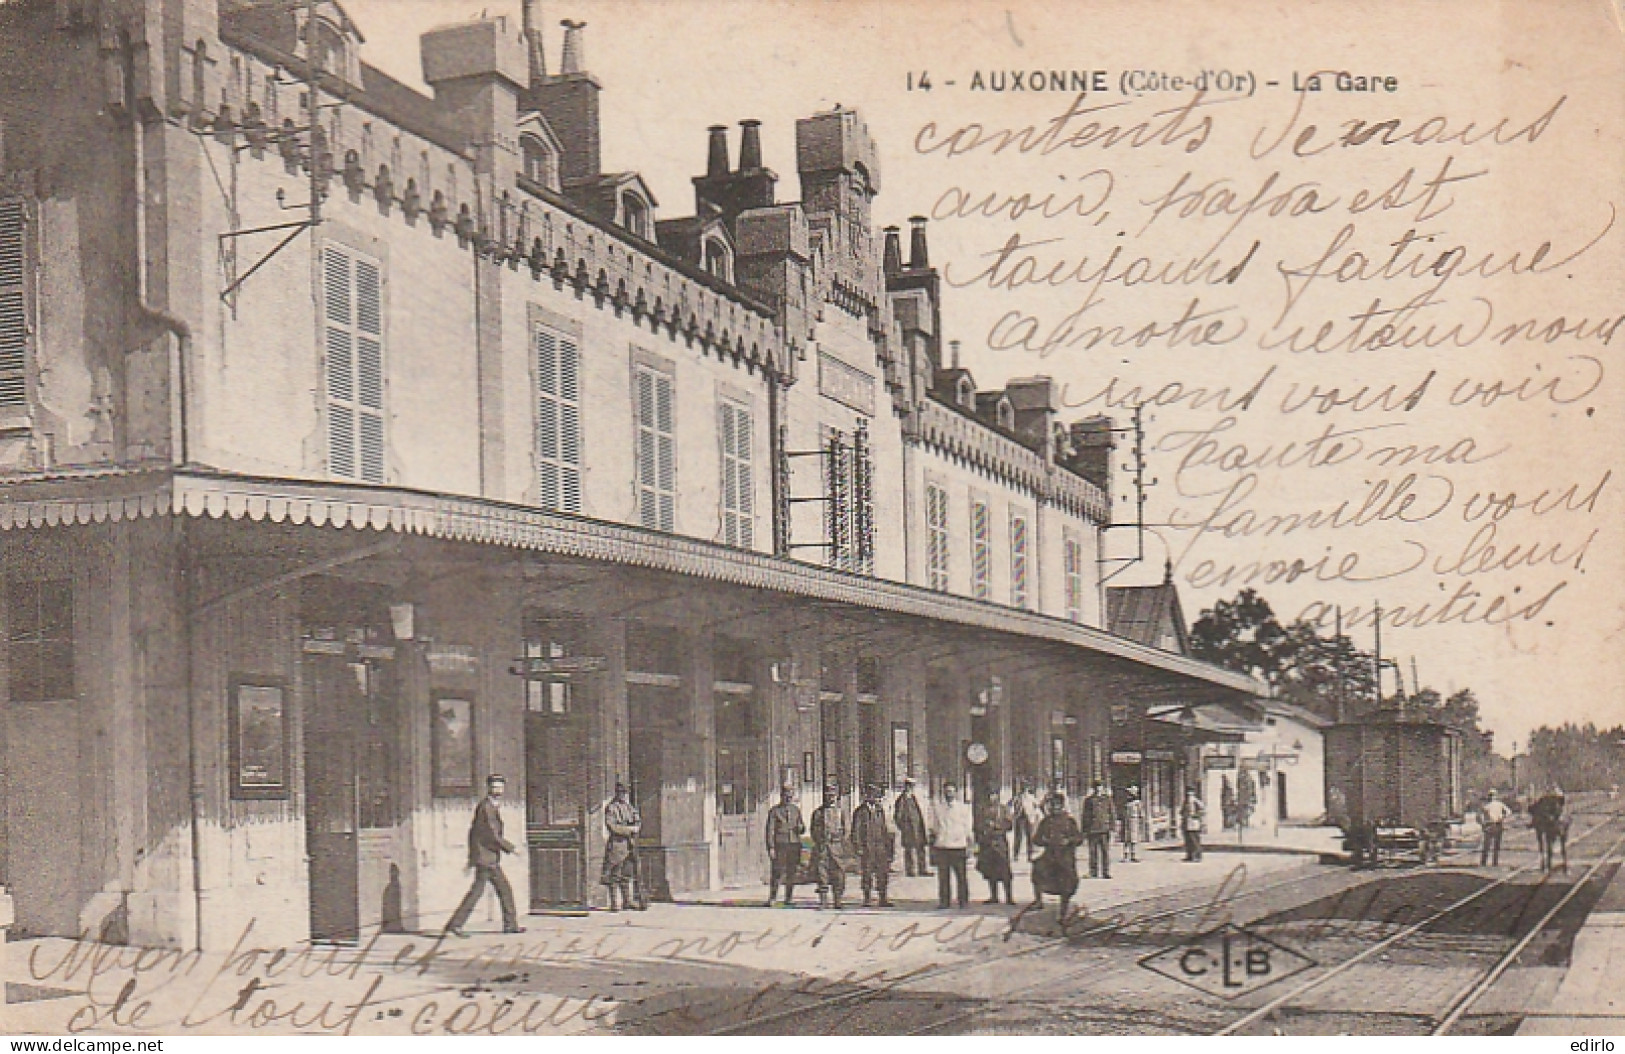 14 - AUXONNE (Côte-d'Or) - La Gare
contents de vous
avoir, papa est
toujours fatigue.
A notre retour nous
irons vous voir.
Toute ma
famille vous
envoie leurs
amitiés.
Mon petit et moi nous vous embrassons
de tout coeur
C.L.B
edirlo
www.delcampe.net